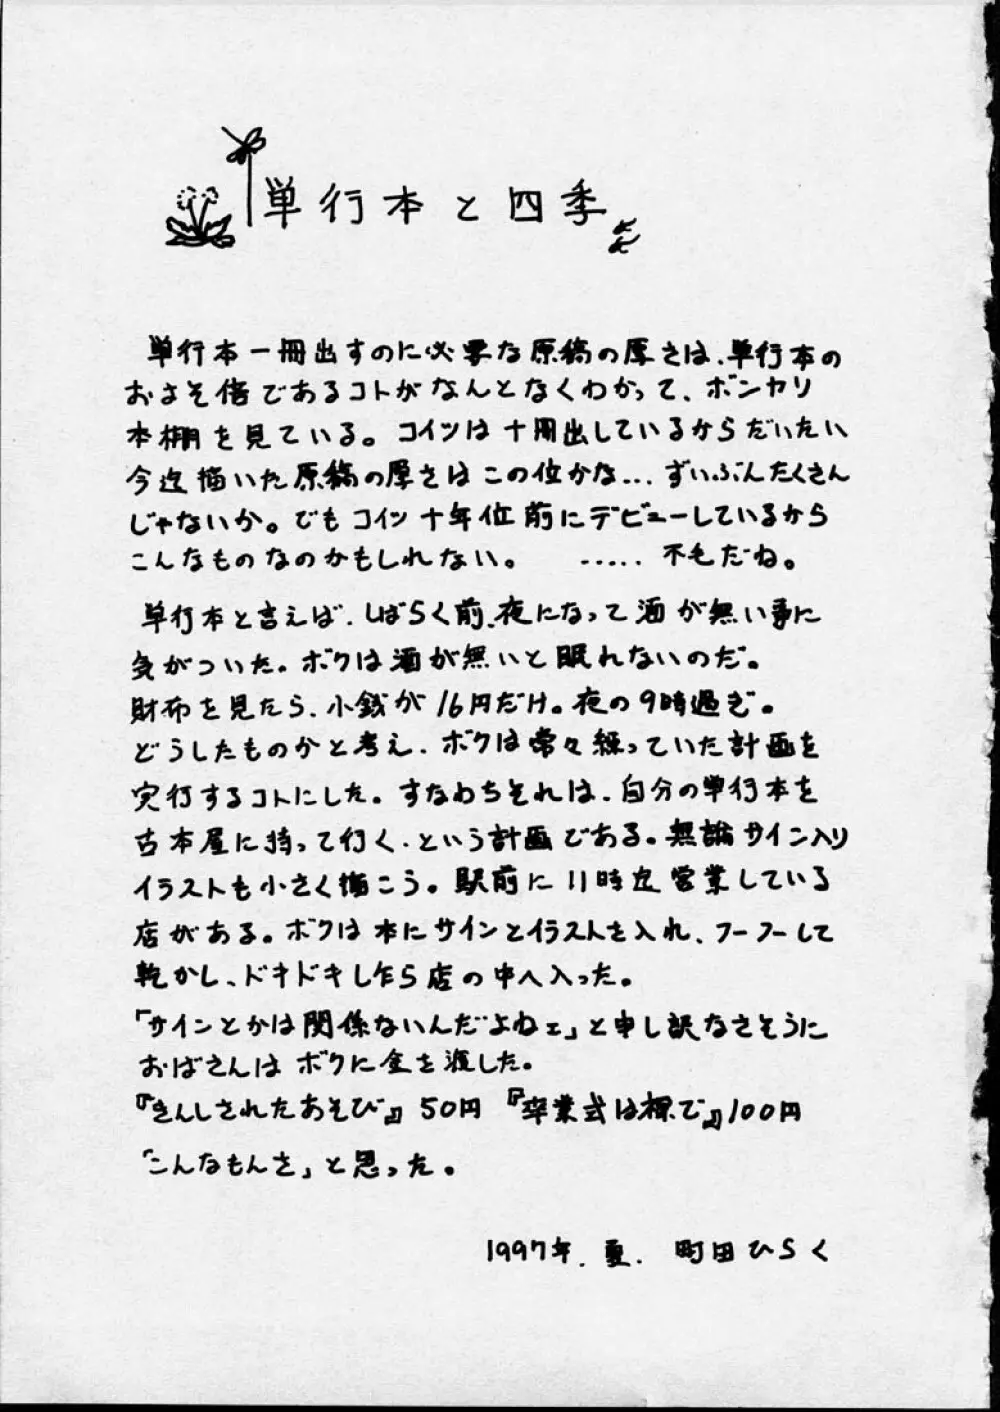 単行本と四季
単行本一冊出すのに必要な原稿の厚さは、単行本の
およそ倍であるコトがなんとなくわかって、ボンヤリ
本棚を見ている。コイツは十冊出しているからだいたい
今迄描いた原稿の厚さはこの位かな...ずいぶんたくさん
じゃないか。でもコイツ十年位前にデビューしているから
こんなものなのかもしれない。 ..... 不毛だね。
単行本と言えば、しばらく前、夜になって酒が無い事に
気がついた。ボクは酒が無いと眠れないのだ。
財布を見たら、小銭が16円だけ。夜の9時過ぎ。
どうしたものかと考え、ボクは常々練っていた計画を
実行するコトにした。すなわちそれは、自分の単行本を
古本屋に持って行く、という計画である。無論サイン入り
イラストも小さく描こう。駅前に11時迄営業している
店がある。ボクは本にサインとイラストを入れ、フーフーして
乾かし、ドキドキし乍ら店の中へ入った。
「サインとかは関係ないんだよねェ」と申し訳なさそうに
おばさんはボクに金を渡した。
『きんしされたあそび』50円 『卒業式は裸で』100円
「こんなもんさ」と思った。
1997年.夏. 町田ひらく